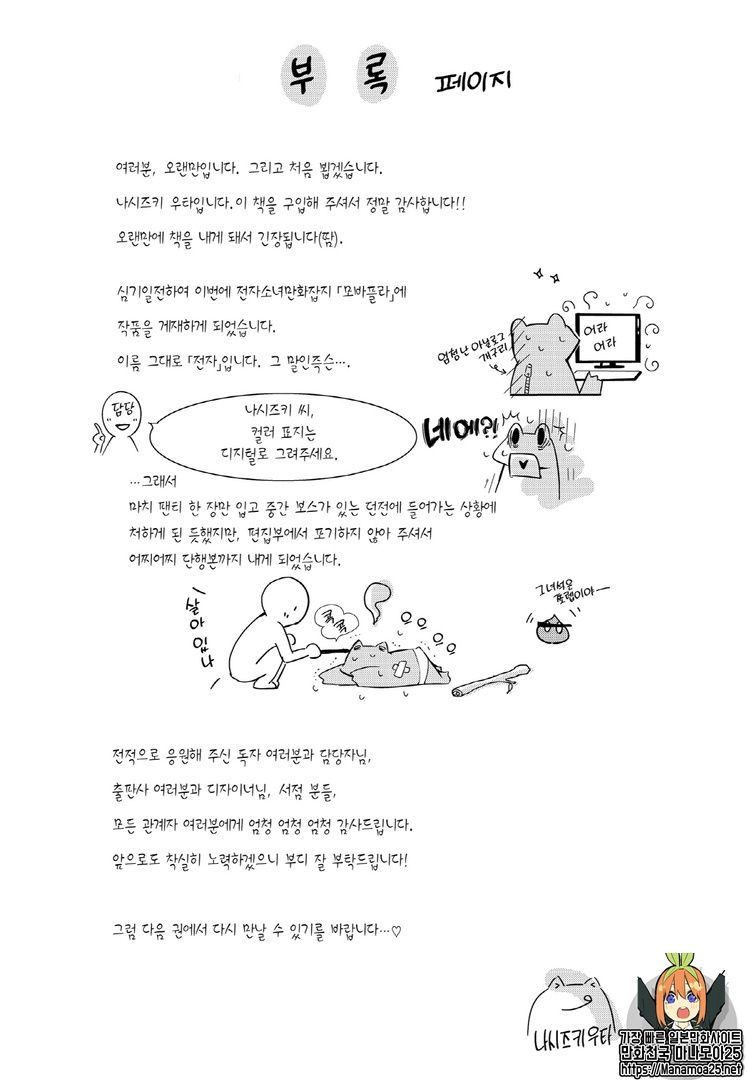 부록 페이지
여러분, 오랜만입니다. 그리고 처음 뵙겠습니다.
나시즈키 우타입니다.이 책을 구입해 주셔서 정말 감사합니다!!
오랜만에 책을 내게 돼서 긴장됩니다(땀).
심기일전하여 이번에 전자소녀만화잡지 「모바플라」에
작품을 게재하게 되었습니다.
이름 그대로 「전자」입니다. 그 말인즉슨….
엄청난 아날로그
개구리
어라
어라
담당
나시즈키 씨,
컬러 표지는
디지털로 그려주세요.
네에?!
…그래서
마치 팬티 한 장만 입고 중간 보스가 있는 던전에 들어가는 상황에
처하게 된 듯했지만, 편집부에서 포기하지 않아 주셔서
어찌어찌 단행본까지 내게 되었습니다.
살아있나
쿡쿡
그녀석은
쪼렙이야—
전적으로 응원해 주신 독자 여러분과 담당자님,
출판사 여러분과 디자이너님, 서점 분들,
모든 관계자 여러분에게 엄청 엄청 엄청 감사드립니다.
앞으로도 착실히 노력하겠으니 부디 잘 부탁드립니다!
그럼 다음 권에서 다시 만날 수 있기를 바랍니다…♡
나시즈키우타
가장 빠른 일본만화사이트
만화천국 마나모아25
https://Manamoa25.net